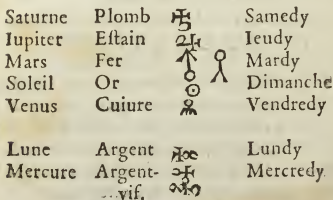 Saturne Plomb ♄ Samedy
Iupiter Eſtain ♃ Ieudy
Mars Fer ♂ Mardy
Soleil Or ☉ Dimanche
Venus Cuiure ♀ Vendredy
Lune Argent Lundy
Mercure Argent- Mercredy
vif.